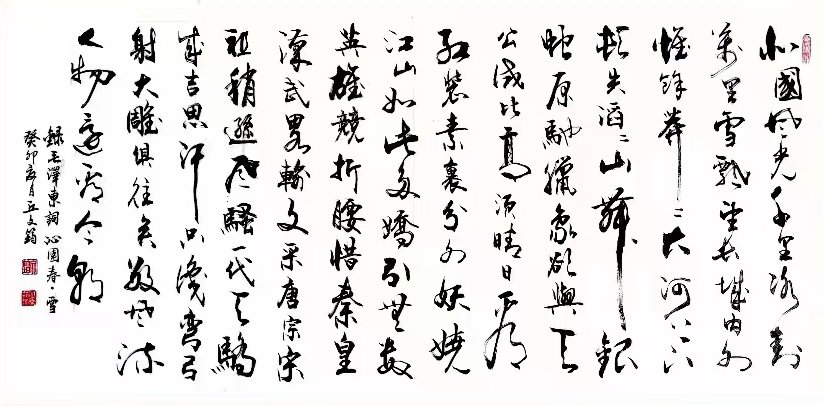 北國風光千里冰封
萬里雪飄望長城內外
惟餘莽々大河上下
頓失滔々山舞銀
蛇原馳蠟象欲與天
公試比高須晴日看
紅裝素裹分外妖嬈
江山如此多嬌引無數
英雄競折腰惜秦皇
漢武略輸文采唐宗宋
祖稍遜風騷一代天驕
成吉思汗只識彎弓
射大雕俱往矣數風流
人物還看今朝
錄毛澤東詞沁園春·雪
癸卯夏月